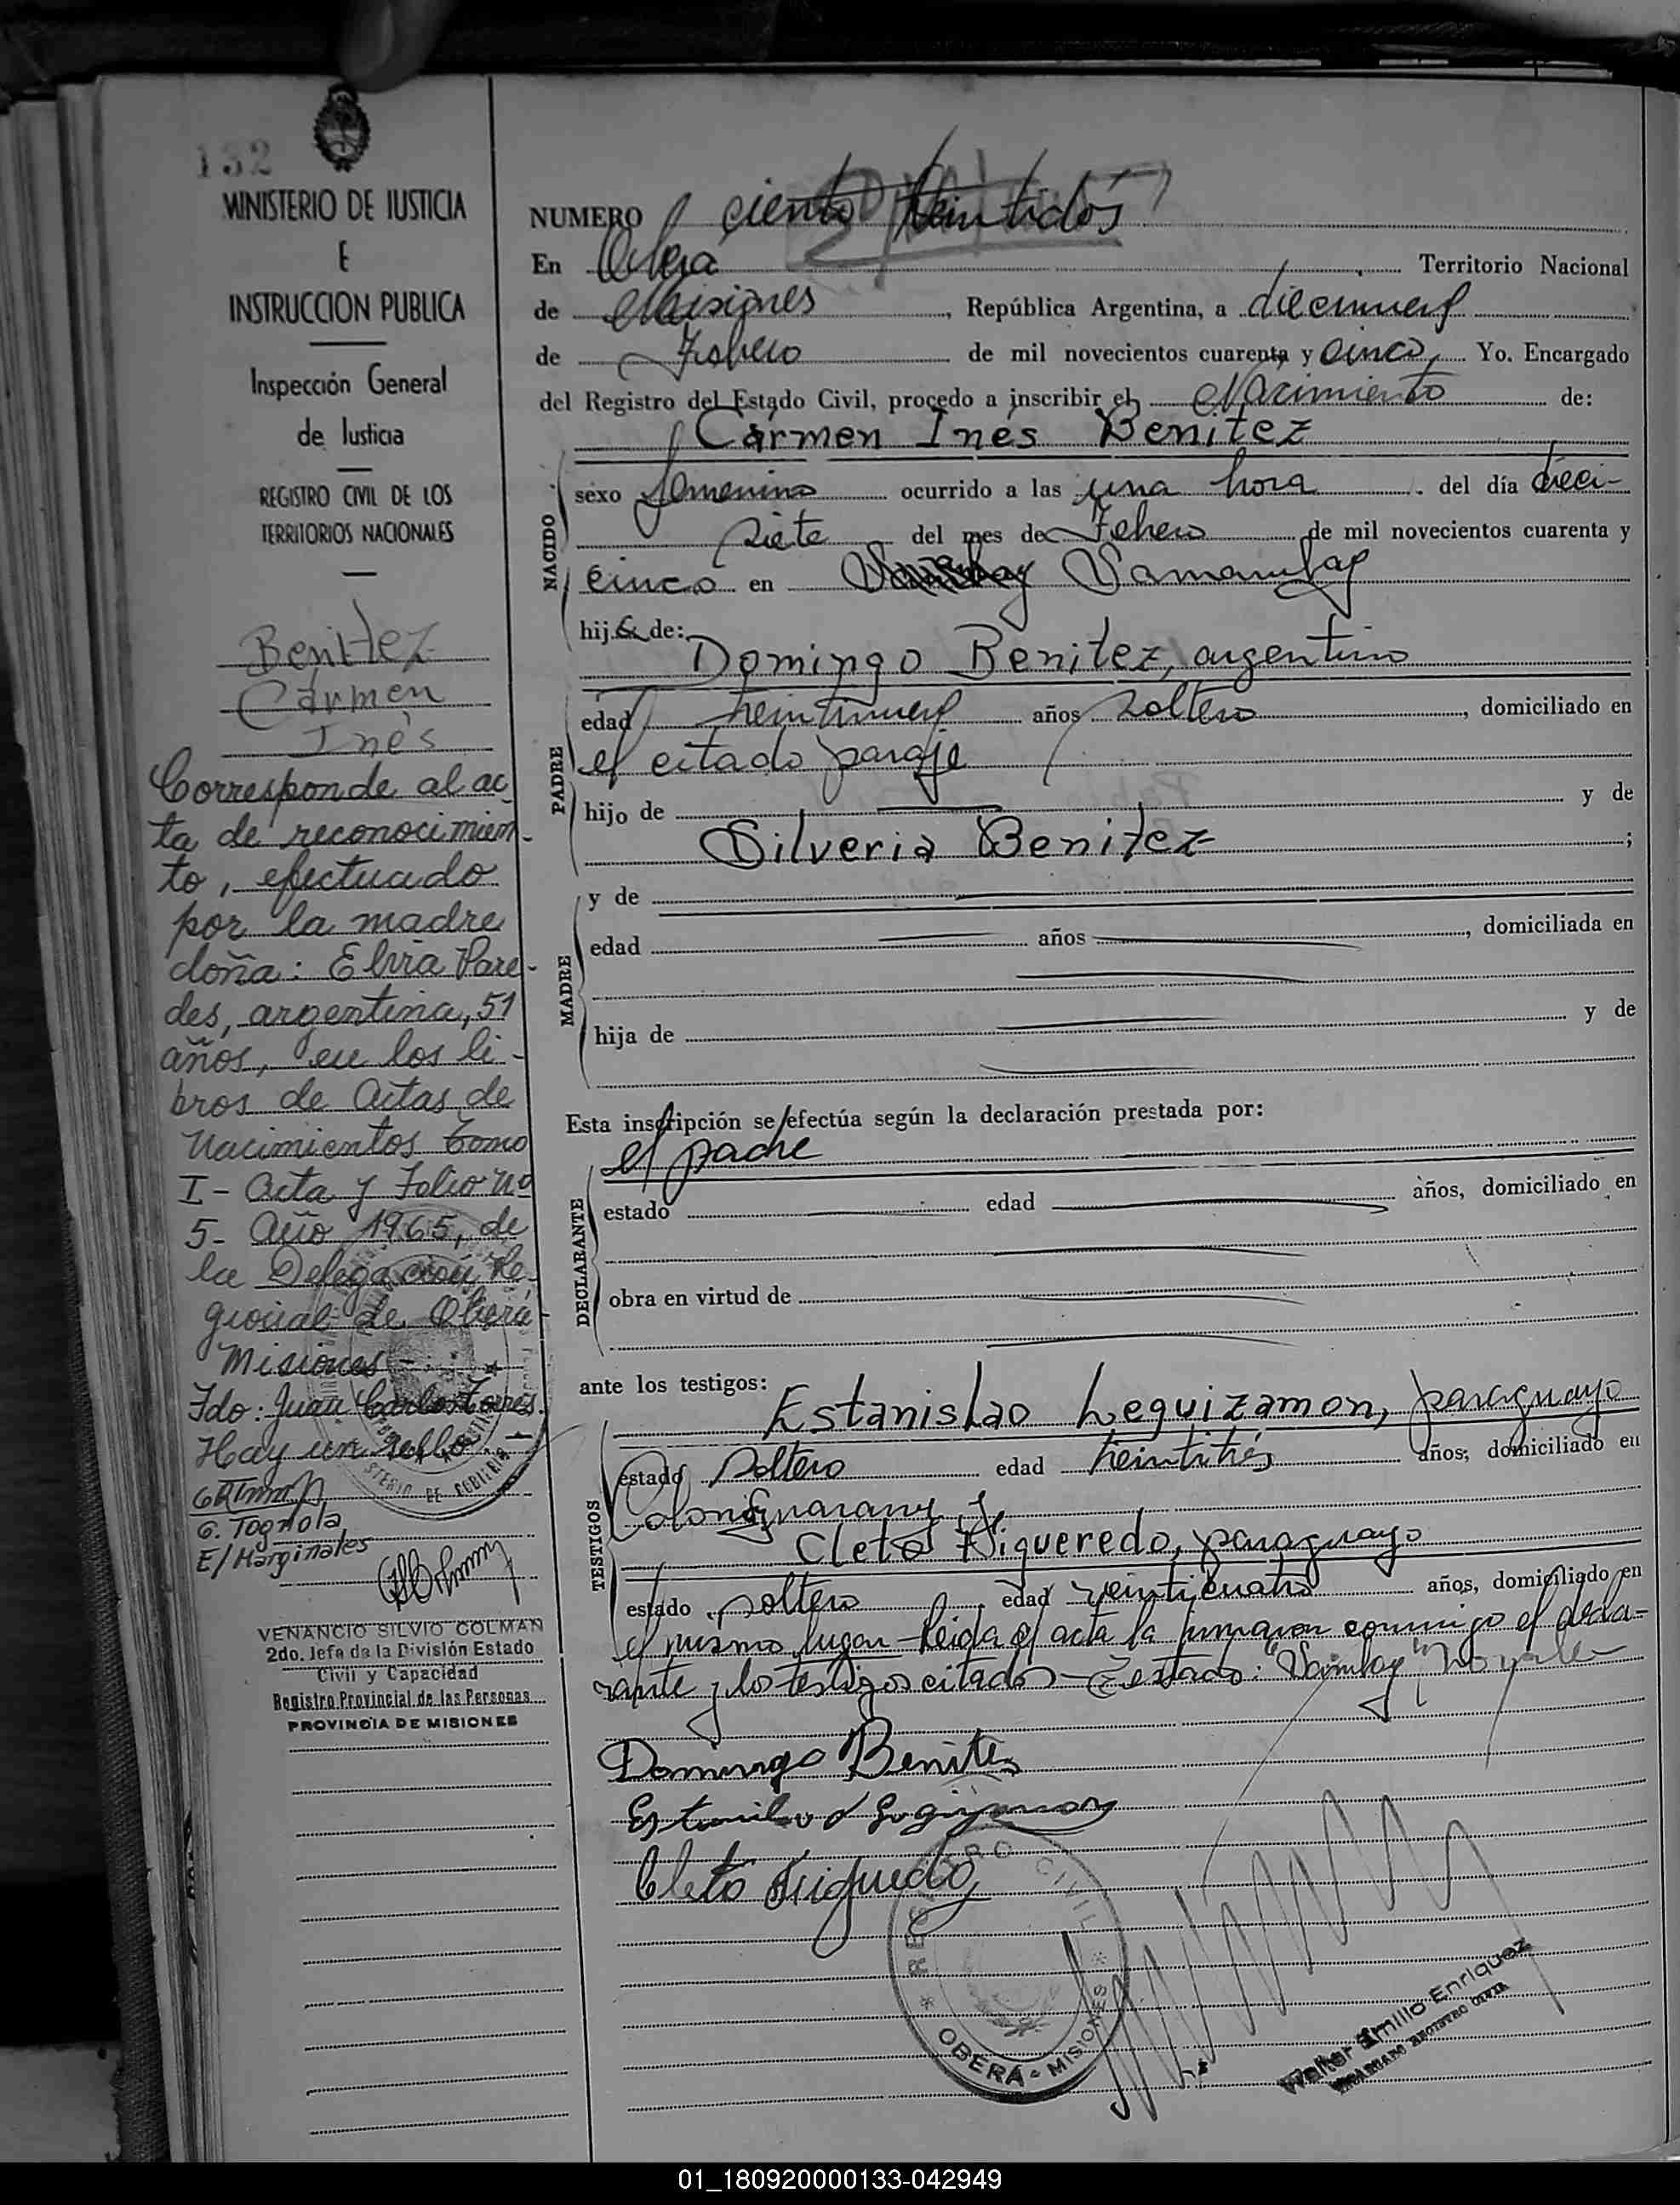 132
MINISTERIO DE JUSTICIA
E
INSTRUCCION PUBLICA
Inspección General
de Justicia
REGISTRO CIVIL DE LOS
TERRITORIOS NACIONALES
Benitez
Cármen
Inés
Corresponde al ac
ta de reconocimien-
to, efectuado
por la madre
doña: Elvira Pare-
des, argentina, 51
años, en los li-
bros de Actas de
Nacimientos Tomo
I - Acta y Folio nº
5 - Año 1965, de
la Delegación Re-
gional de Oberá
Misiones -
Fdo: Juan Carlos Torres.
Hay un sello. -
G. Tognola
E/Marginales
VENANCIO SILVIO COLMAN
2do. Jefe de la División Estado
Civil y Capacidad
Registro Provincial de las Personas
PROVINCIA DE MISIONES
NUMERO ciento treintidós
En Oberá Territorio Nacional
de Misiones, República Argentina, a diecinueve
de Febrero de mil novecientos cuarenta y cinco, Yo. Encargado
del Registro del Estado Civil, procedo a inscribir el Nacimiento de:
Cármen Inés Benitez
NACIDO
sexo femenino ocurrido a las una hora del día dieci-
siete del mes de Febrero de mil novecientos cuarenta y
cinco en
hija de:
Domingo Benitez, argentino
PADRE
edad treintinueve años soltero, domiciliado en
el citado paraje
hijo de y de
Silveria Benitez ;
MADRE
y de
edad años , domiciliada en
hija de y de
Esta inscripción se efectúa según la declaración prestada por:
el padre
DECLARANTE
estado edad años, domiciliado en
obra en virtud de
ante los testigos:
Estanislao Leguizamon, paraguayo
TESTIGOS
estado soltero edad treintitrés años; domiciliado en
Colonia Guarany y
Cleto Figueredo, paraguayo
estado soltero edad veinticuatro años, domiciliado en
el mismo lugar - Leida el acta la firmaron conmigo el decla-
rante y los testigos citados - Testado: no vale -
Domingo Benites
Cleto Figueredo
REGISTRO CIVIL
OBERÁ - MISIONES
Walter Emilio Enriquez
ENCARGADO REGISTRO CIVIL
01_180920000133-042949